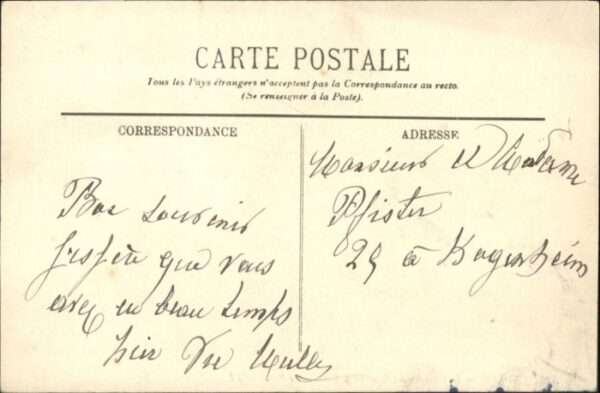 CARTE POSTALE
Tous les Pays étrangers n'acceptent pas la Correspondance au recto.
(Se renseigner à la Poste).
CORRESPONDANCE
ADRESSE
Monsieur et Madame
Pfister
29 à Kogenheim
Bon souvenir
que vous
avez eu beau temps
hier